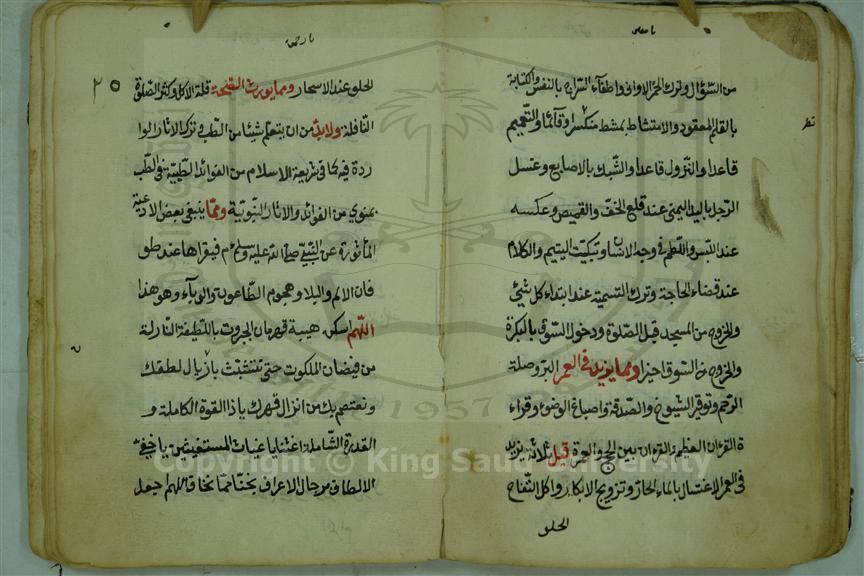 من السؤال وترك الجر الاواني واطفاء السراج بالنفس والكتابة
بالقلم المعقود والامتشاط بمشط منكسر او قائما والتعميم
قاعدا والتزول قاعدا والشبك بالاصابع وغسل
الرجل باليد اليمنى عند قلع الخف والقميص وعكسه
عند اللبس واللطم في وجه الانسان وتبكيت اليتيم والكلام
عند قضاء الحاجة وترك التسمية عند ابتداء كل شئ
والخروج من المسجد قبل الصلوة ودخول السوق بالبكرة
والخروج من السوق اخيرا ومما يزيد في العمر البر وصلة
الرحم وتوقير الشيوخ والصدقة واصباغ الوضوء وقراء
ة القرءان العظيم والقران بين الحج والعمرة قيل ثلاثة يزيد
في العمر الاغتسال بالماء الحار وتزويج الابكار واكل التفاح
الحلو
نظر
٢٥
الحلو عند الاسحار ومما يورث الصحة قلة الاكل وكثر الصلوة
النافلة ولابد من ان يتعلم شيئا من الطب في ترك الاثار الوا
ردة فيه كما في شرعة الاسلام من الفوائد الطبية في الطب
النبوي من الفوائد والاثار النبوية ومما ينبغي بعض الادعية
المأثورة عن النبي صلى الله عليه وسلم فيقراها عند طو
فان الالم والبلا وهجوم الطاعون والوباء وهو هذا
اللهم اسكن هيبة قهرمان الجبروت باللطيفة النازلة
من فيضان الملكوت حتى نتشبث باذيال لطفك
ونعتصم بك من انزال قهرك يا ذا القوة الكاملة و
القدرة الشاملة اغثنا يا غياث المستغيثين يا خفي
الالطاف رجال الاعراف نجنا مما نخاف اللهم اجعل
Copyright © King Saud University
1957